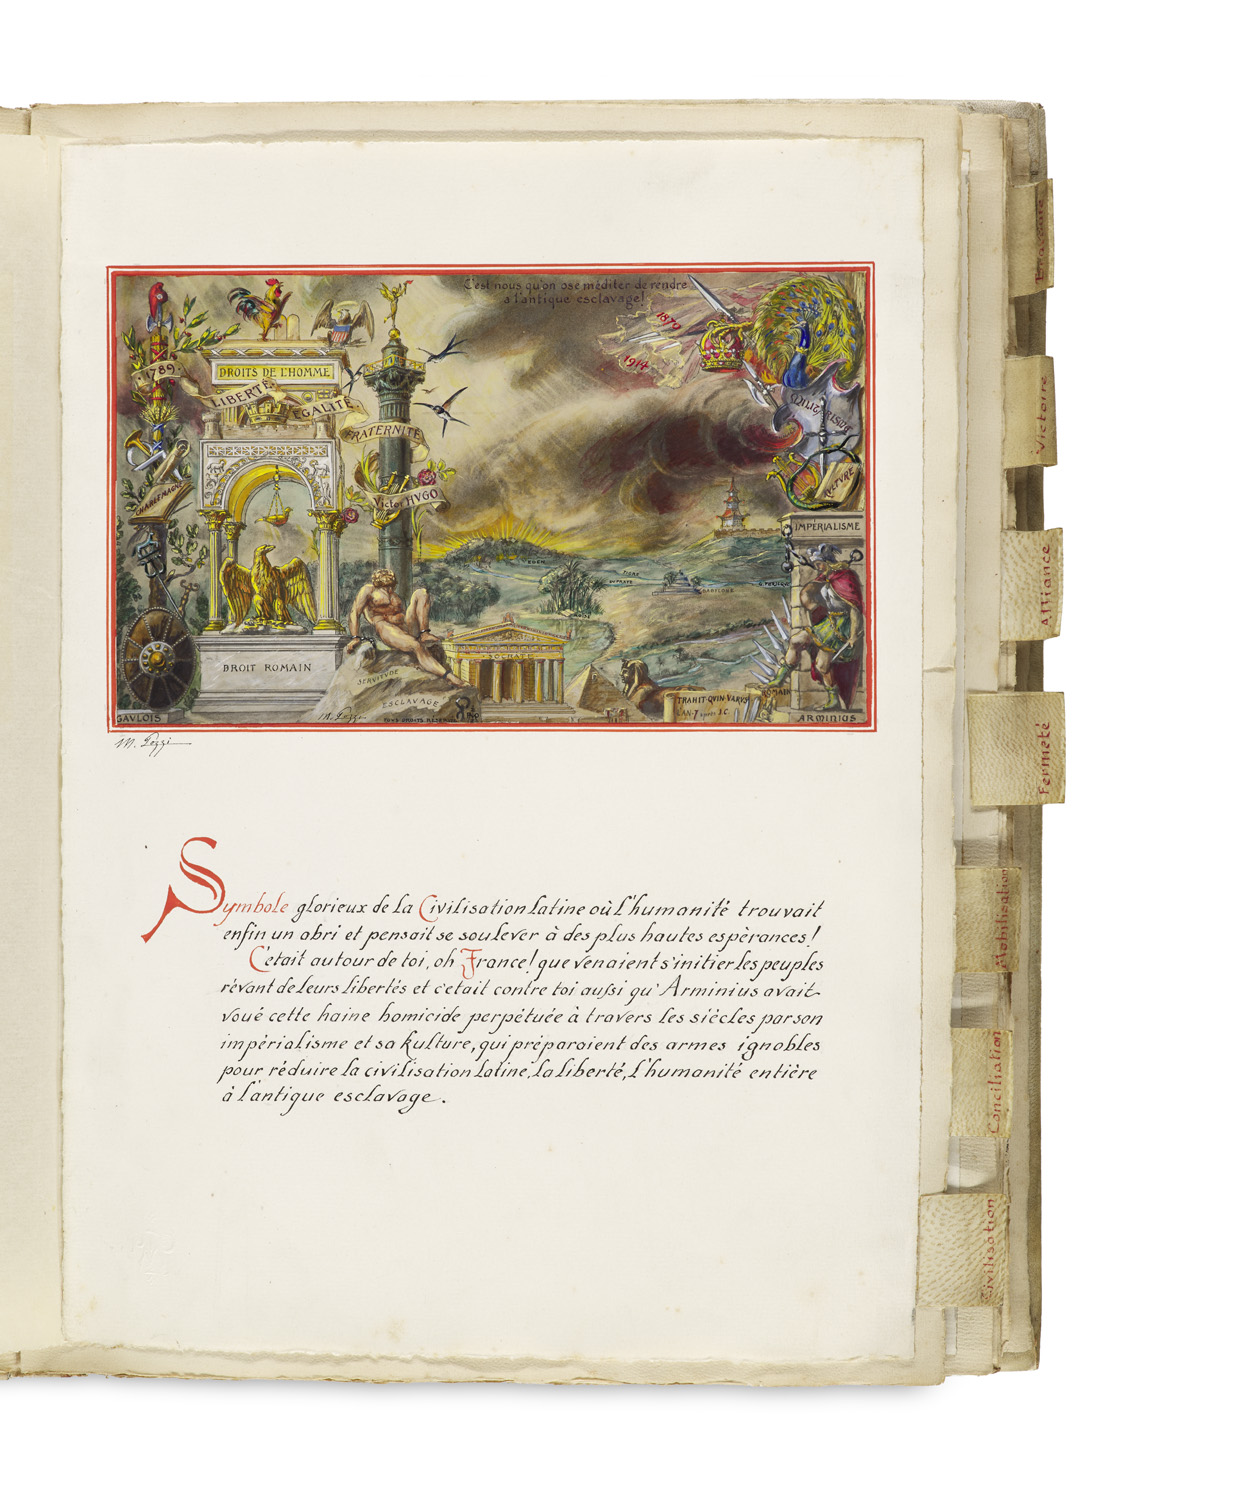 C'est nous qu'on ose méditer de rendre
a l'antique esclavage!
1870
1914
1789
DROITS DE L'HOMME
LIBERTÉ
ÉGALITÉ
FRATERNITÉ
Victor HVGO
CHARLEMAGNE
MILITARISME
KVLTVRE
IMPÉRIALISME
EDEN
BABYLONE
DROIT ROMAIN
SOCRATE
SERVITUDE
ESCLAVAGE
TRAHIT QVIN·VARVS
L'AN·7 après J.C.
ROMAIN
GAVLOIS
M. Pezzi
TOUS DROITS RÉSERVÉS
ARMINIUS
M. Pezzi
Symbole glorieux de la Civilisation Latine où l'humanité trouvait
enfin un abri et pensait se soulever à des plus hautes espèrances!
C'etait autour de toi, oh France! que venaient s'initier les peuples
rêvant de leurs libertés et c'etait contre toi aussi qu'Arminius avait
voué cette haine homicide perpétuée à travers les siècles par son
impérialisme et sa kulture, qui préparaient des armes ignobles
pour réduire la civilisation latine, la liberté, l'humanité entière
à l'antique esclavage.
Victoire
Alliance
Fermeté
Mobilisation
Conciliation
Civilisation